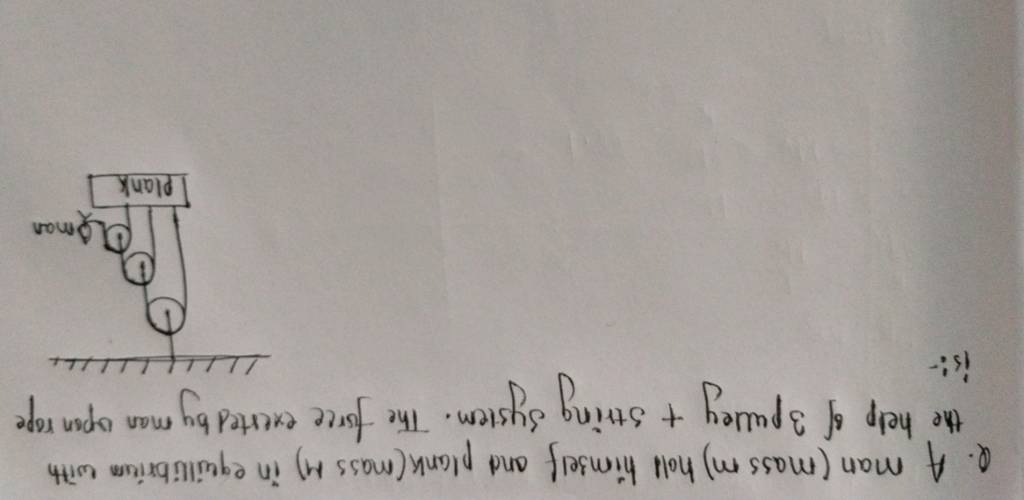 Q. A man (mass m) hold himself and plank (mass M) in equilibrium with
the help of 3 pulley + string system. The force exerted by man upon rope
is:-
man
plank